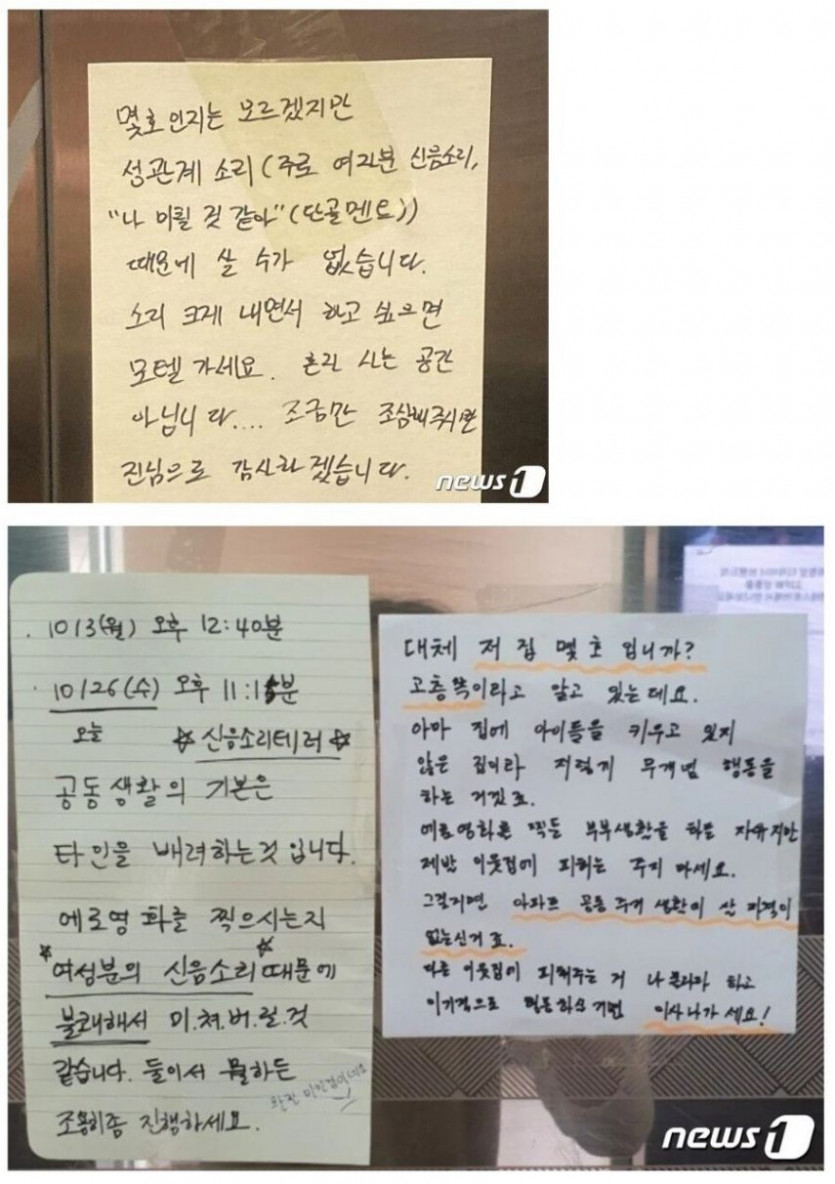 몇호인지는 모르겠지만
성관계 소리 (주로 여자분 신음소리,
"나 미칠 것 같아" (단골멘트))
때문에 살 수가 없습니다.
소리 크게 내면서 하고 싶으면
모텔 가세요. 혼자 사는 공간
아닙니다.... 조금만 조심해주시면
진심으로 감사하겠습니다.
news1
. 10/3(월) 오후 12:40분
. 10/26(수) 오후 11:15분
오늘 ☆신음소리테러☆
공동생활의 기본은
타인을 배려하는것 입니다.
에로영화를 찍으시는지
☆여성분의 신음소리☆때문에
불쾌해서 미.쳐.버.릴.것
같습니다. 둘이서 뭘하든
조용히좀 진행하세요.
대체 저 집 몇호 입니까?
고층쪽이라고 알고 있는데요.
아마 집에 아이들을 키우고 있지
않은 집이라 저렇게 무개념 행동을
하는 거겠죠.
에로영화를 찍든 부부생활을 하든 자유지만
제발 이웃집에 피해는 주지 마세요.
그럴거면 아파트 공동 주거 생활이 살 자격이
없는신거죠.
다른 이웃집이 피해주는 거 나 몰라라 하고
이기적으로 행동하실거면 이사나가세요!
news1